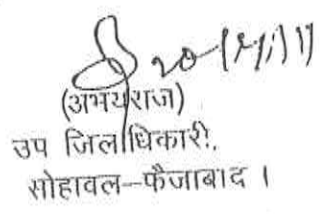 (अभयराज)
उप जिलाधिकारी,
सोहावल–फैजाबाद ।